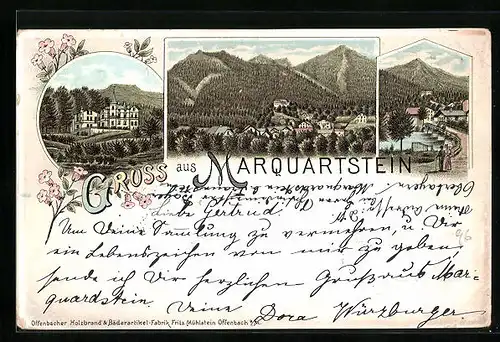 GRUSS aus MARQUARTSTEIN
Liebe Gertrud!
Um Deine Samlung zu vermehren, u. Dir
ein Lebenszeichen von mir zu geben,
sende ich Dir herzlichen Gruß aus Mar-
quardstein. Deine Dora Würzburger.
Offenbacher Holzbrand & Bäderartikel-Fabrik Fritz Mühlstein Offenbach a/M.